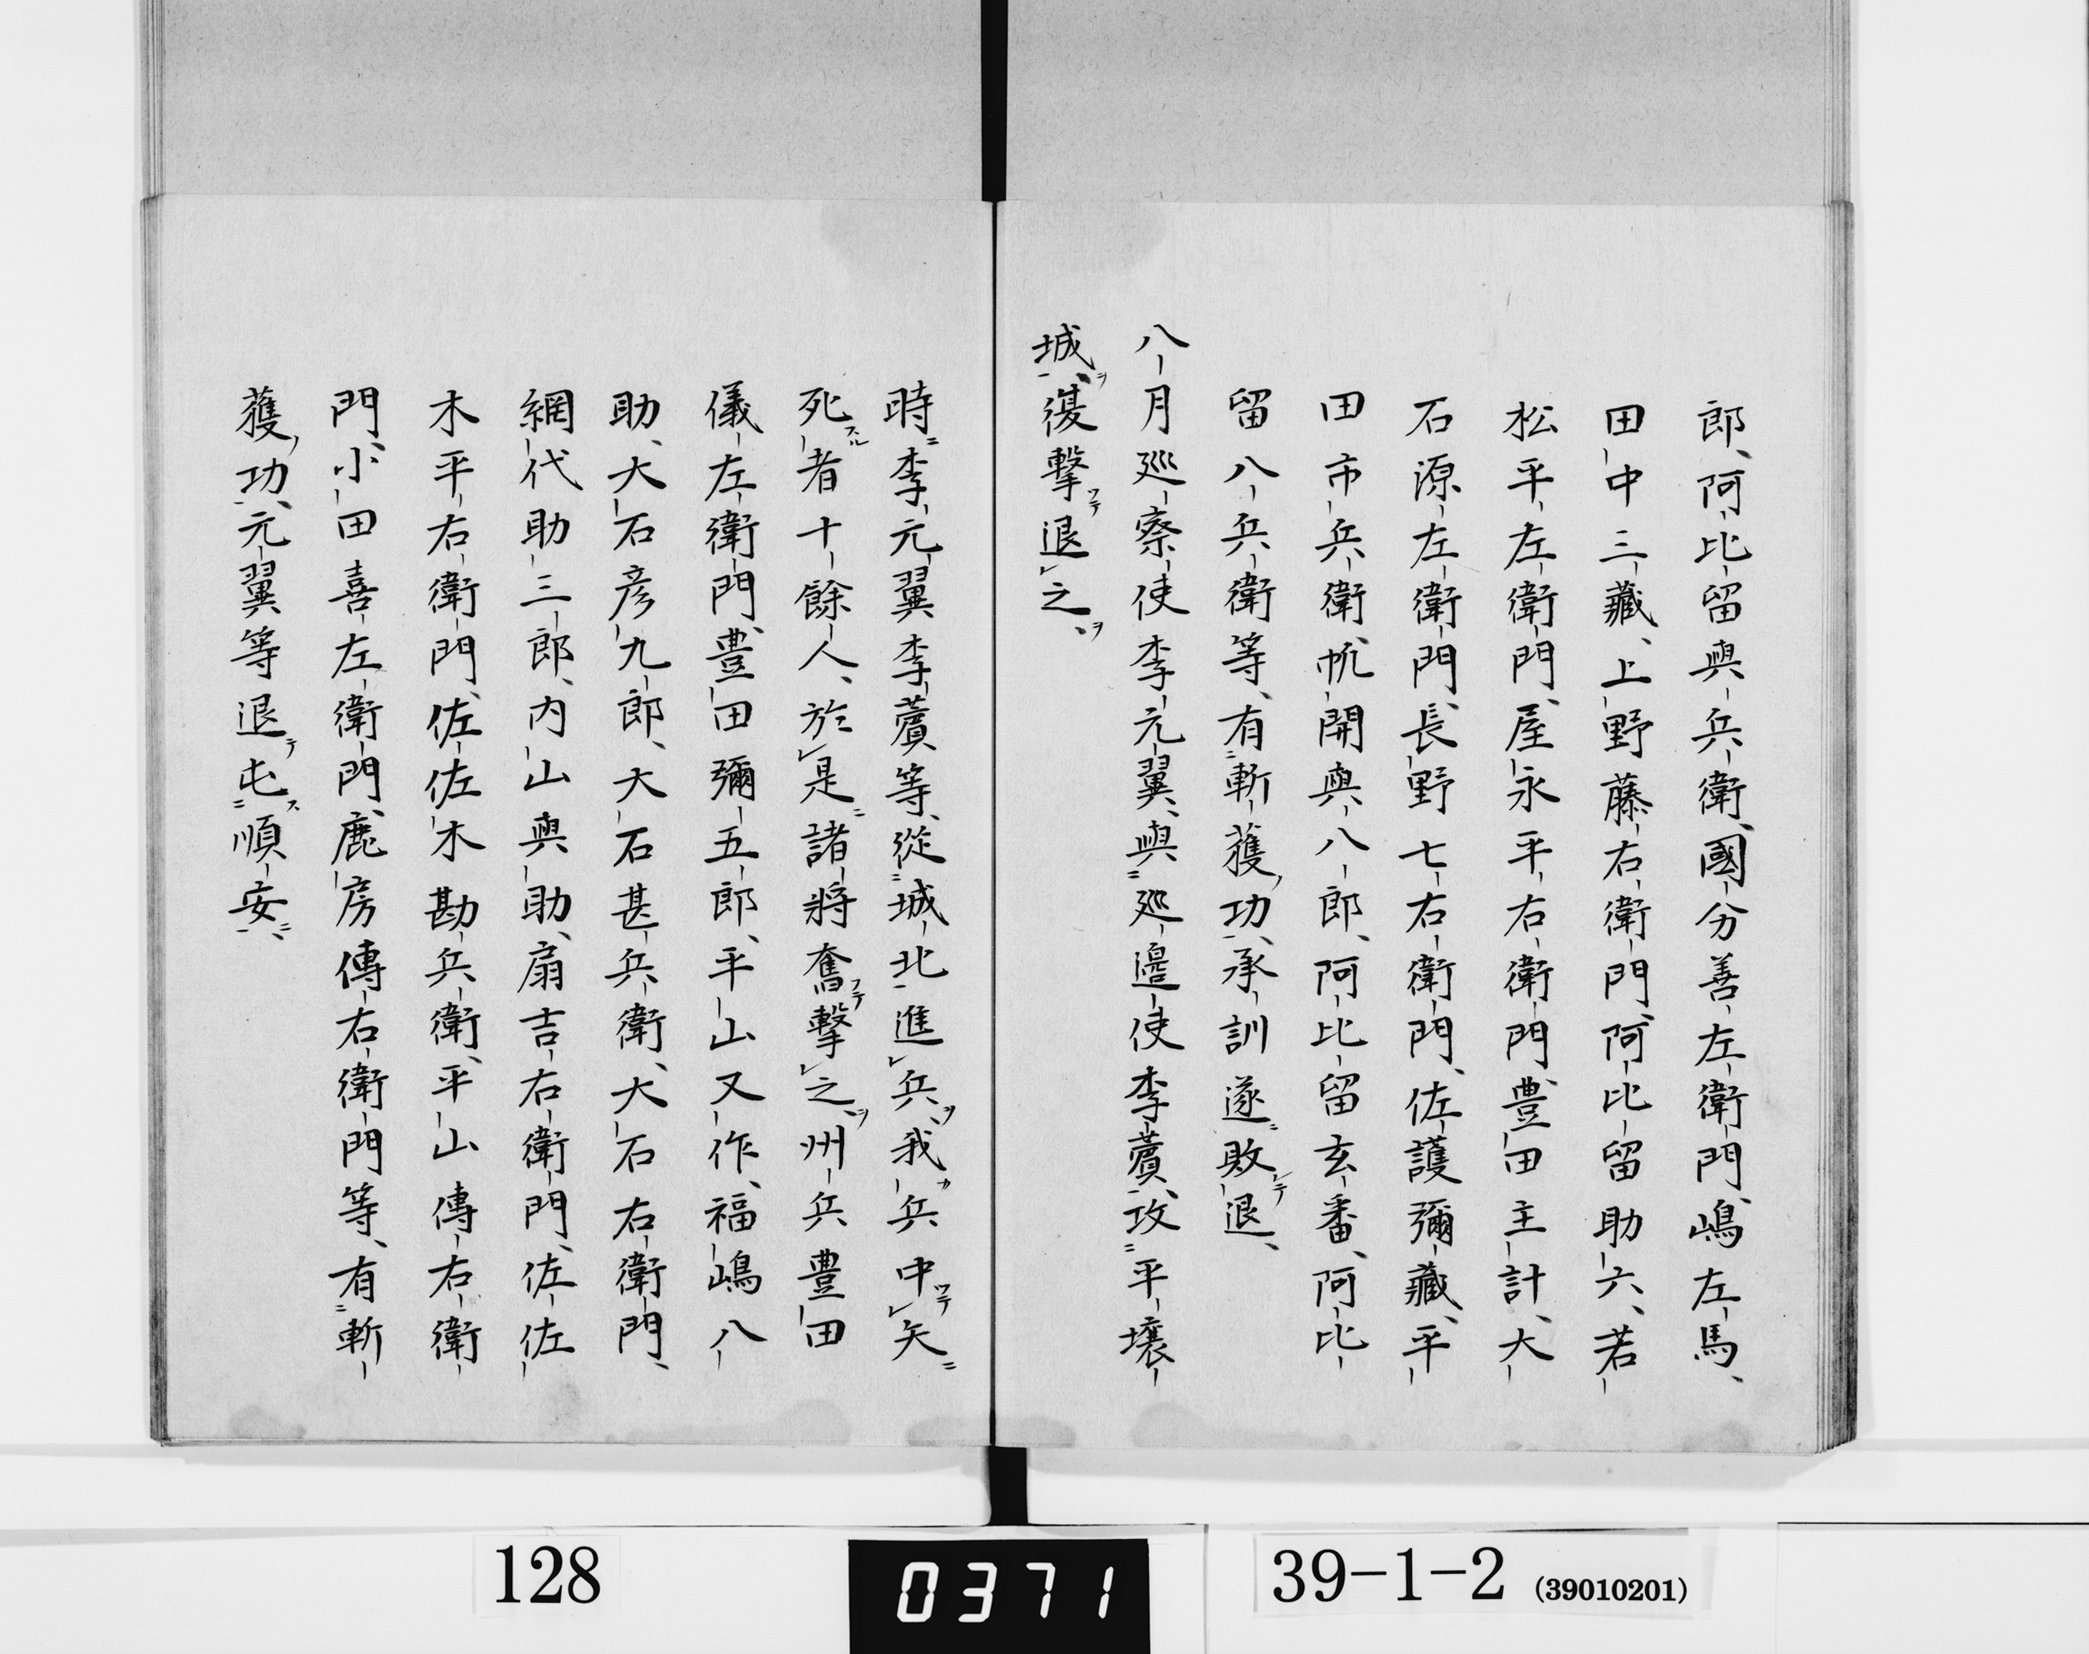 郎、阿比留與兵衛、國分善左衛門、嶋左馬、
田中三藏、上野藤右衛門、阿比留助六、若
松平左衛門、屋永平右衛門、豊田主計、大
石源左衛門、長野七右衛門、佐護彌藏、平
田市兵衛、帆開與八郎、阿比留玄番、阿比
留八兵衛等、有斬獲功、承訓遂敗退、
八月巡察使李元翼、與巡邉使李薲、攻平壌
城、復撃退之、
時李元翼李薲等、從城北進兵、我兵中矢
死者十餘人、於是諸將奮撃之、州兵豊田
儀左衛門、豊田彌五郎、平山又作、福嶋八
助、大石彦九郎、大石甚兵衛、大石右衛門、
網代助三郎、内山與助、扇吉右衛門、佐佐
木平右衛門、佐佐木勘兵衛、平山傳右衛
門、小田喜左衛門、鹿房傳右衛門等、有斬
獲功、元翼等退屯順安、
128
0371
39-1-2 (39010201)